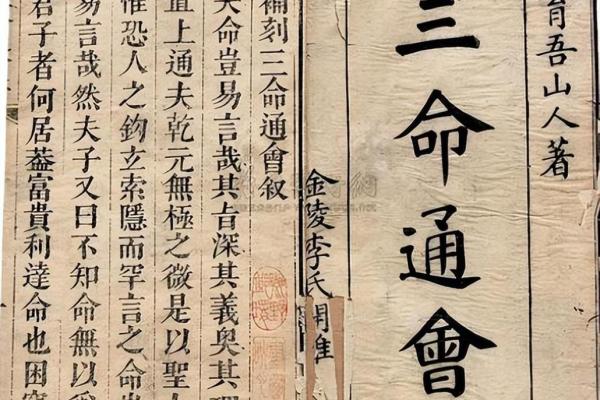 育吾山人著
三命通會
金陵李氏
補刻三命通會叙
夫命豈易言哉其旨深其義奥其理
直上通夫乾元無極之微是以聖人
惟恐人之鈎立索隱而罕言之命
易言哉然夫子又曰不知命無以爲
君子者何居葢富貴利達命也困窮